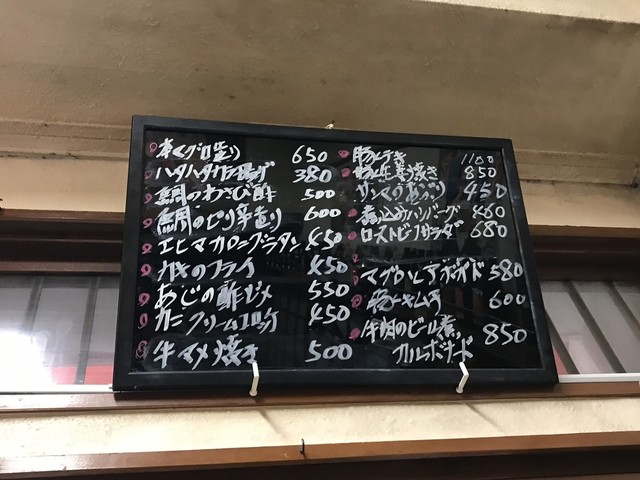 本マグロ造り 650
ハタハタ唐揚げ 380
鯛のわさび酢 500
鯛のピリ辛造り 600
エビマカロニグラタン 450
カキのフライ 450
あじの酢〆 550
カニクリームコロッケ 450
牛マメ焼き 500
豚テキ 1100
豚生姜焼き 850
サンマのあぶり 450
煮込みハンバーグ 480
ローストビーフサラダ 680
マグロとアボガド 580
豚キムチ 600
牛肉のビール煮 850
カルボナード